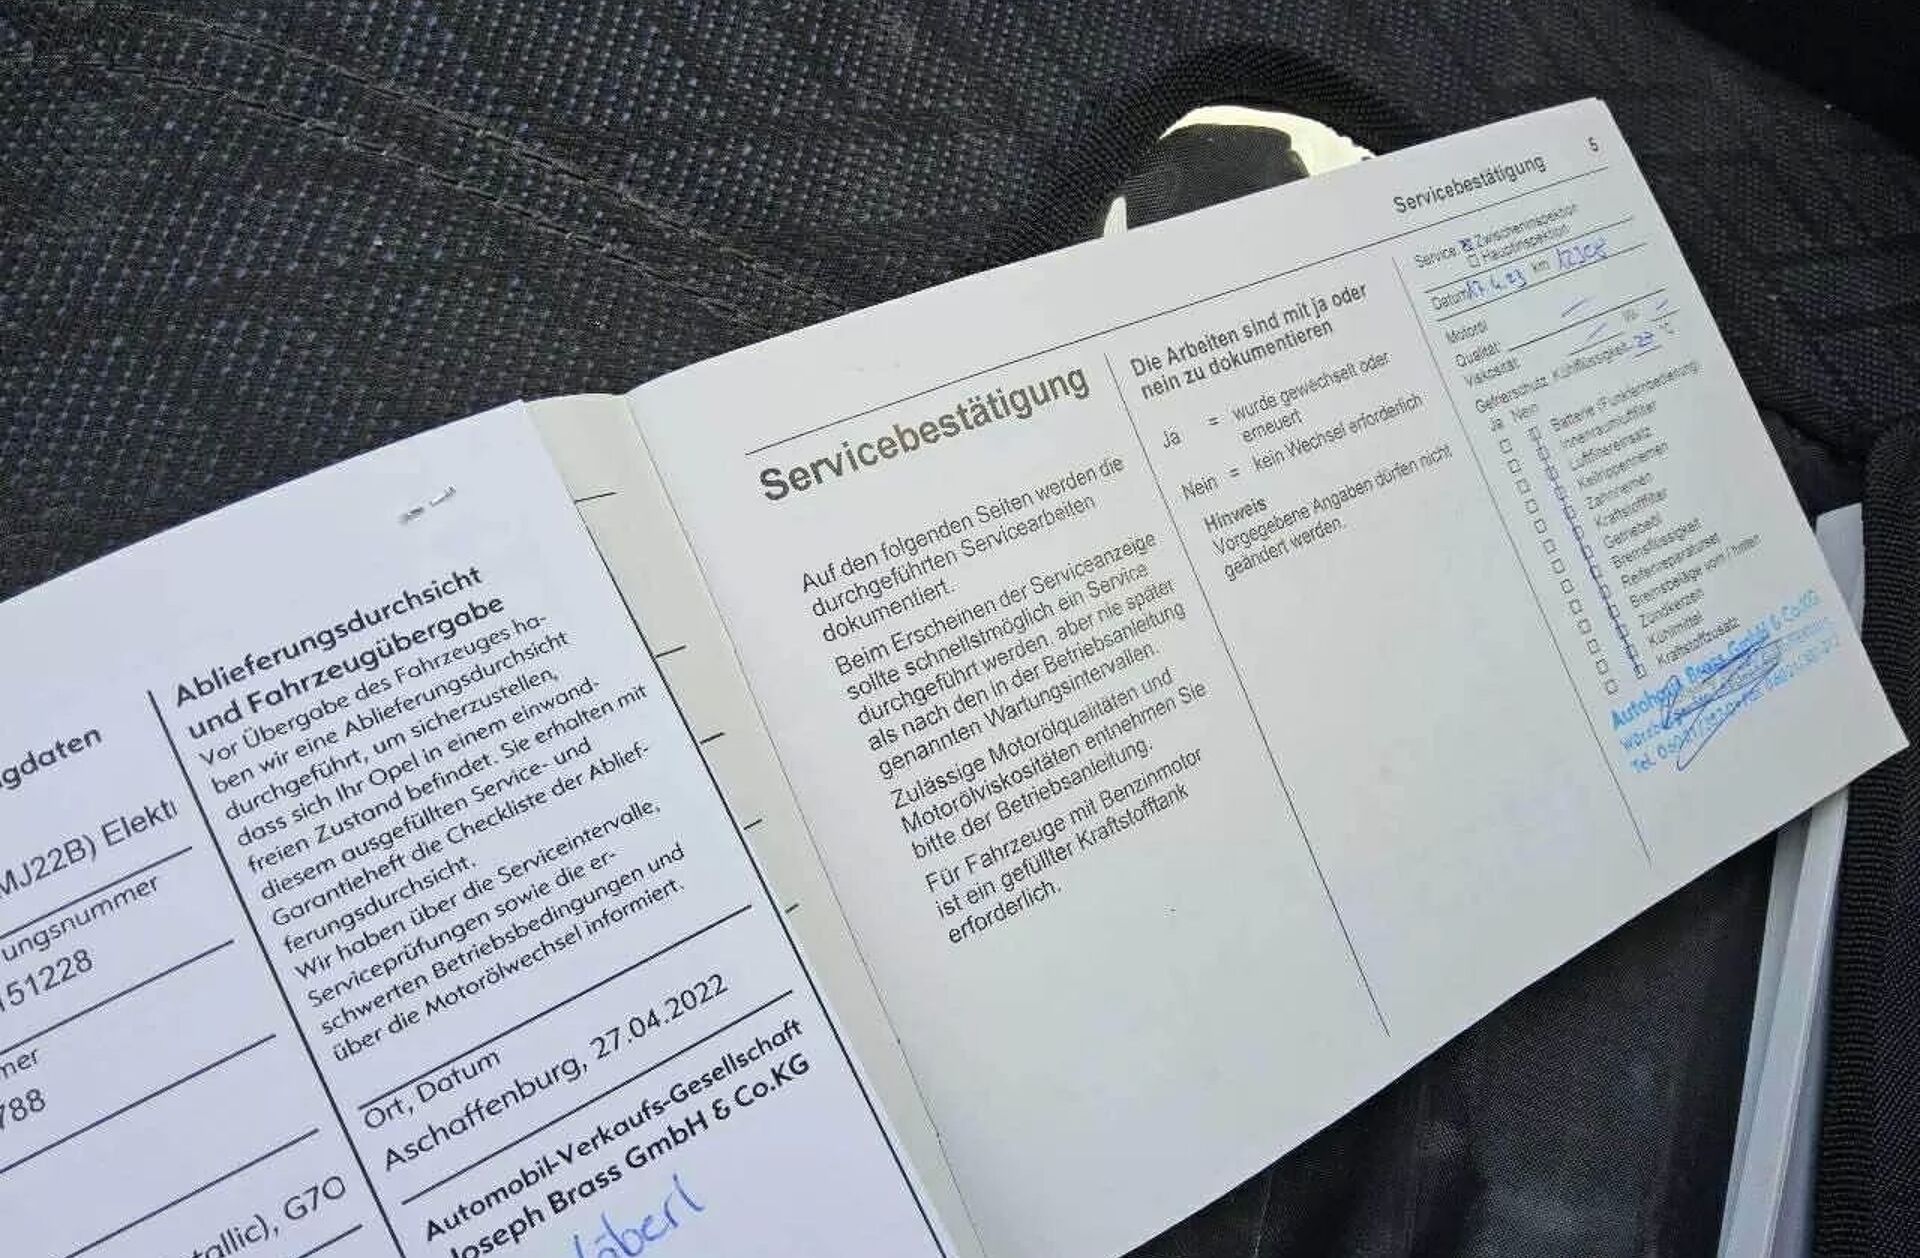 gdaten
MJ22B) Elekt
ungsnummer
151228
mer
788
tallic), G7O
Ablieferungsdurchsicht
und Fahrzeugübergabe
Vor Übergabe des Fahrzeuges ha-
ben wir eine Ablieferungsdurchsicht
durchgeführt, um sicherzustellen,
dass sich Ihr Opel in einem einwand-
freien Zustand befindet. Sie erhalten mit
diesem ausgefüllten Service- und
Garantieheft die Checkliste der Ablief-
ferungsdurchsicht.
Wir haben über die Serviceintervalle,
Serviceprüfungen sowie die er-
schwerten Betriebsbedingungen und
über die Motorölwechsel informiert.
Ort, Datum
Aschaffenburg, 27.04.2022
Automobil-Verkaufs-Gesellschaft
Joseph Brass GmbH & Co.KG
Servicebestätigung 5
Servicebestätigung
Auf den folgenden Seiten werden die
durchgeführten Servicearbeiten
dokumentiert.
Beim Erscheinen der Serviceanzeige
sollte schnellstmöglich ein Service
durchgeführt werden, aber nie später
als nach den in der Betriebsanleitung
genannten Wartungsintervallen.
Zulässige Motorölqualitäten und
Motorölviskositäten entnehmen Sie
bitte der Betriebsanleitung.
Für Fahrzeuge mit Benzinmotor
ist ein gefüllter Kraftstofftank
erforderlich.
Die Arbeiten sind mit ja oder
nein zu dokumentieren
Ja = wurde gewechselt oder
erneuert
Nein = kein Wechsel erforderlich
Hinweis
Vorgegebene Angaben dürfen nicht
geändert werden.
Service: Zwischeninspektion
Hauptinspektion
Datum 17.4.23 km
Motoröl
Qualität:
Viskosität: W-
Gefrierschutz Kühlflüssigkeit: °C
Ja Nein
Batterie (Funkfernbedienung)
Innenraumluftfilter
Luftfiltereinsatz
Keilrippenriemen
Zahnriemen
Kraftstofffilter
Getriebeöl
Bremsflüssigkeit
Reifenreparaturset
Bremsbeläge vorn / hinten
Zündkerzen
Kühlmittel
Kraftstoffzusatz
Autohaus Brass GmbH & Co.KG
Tel.